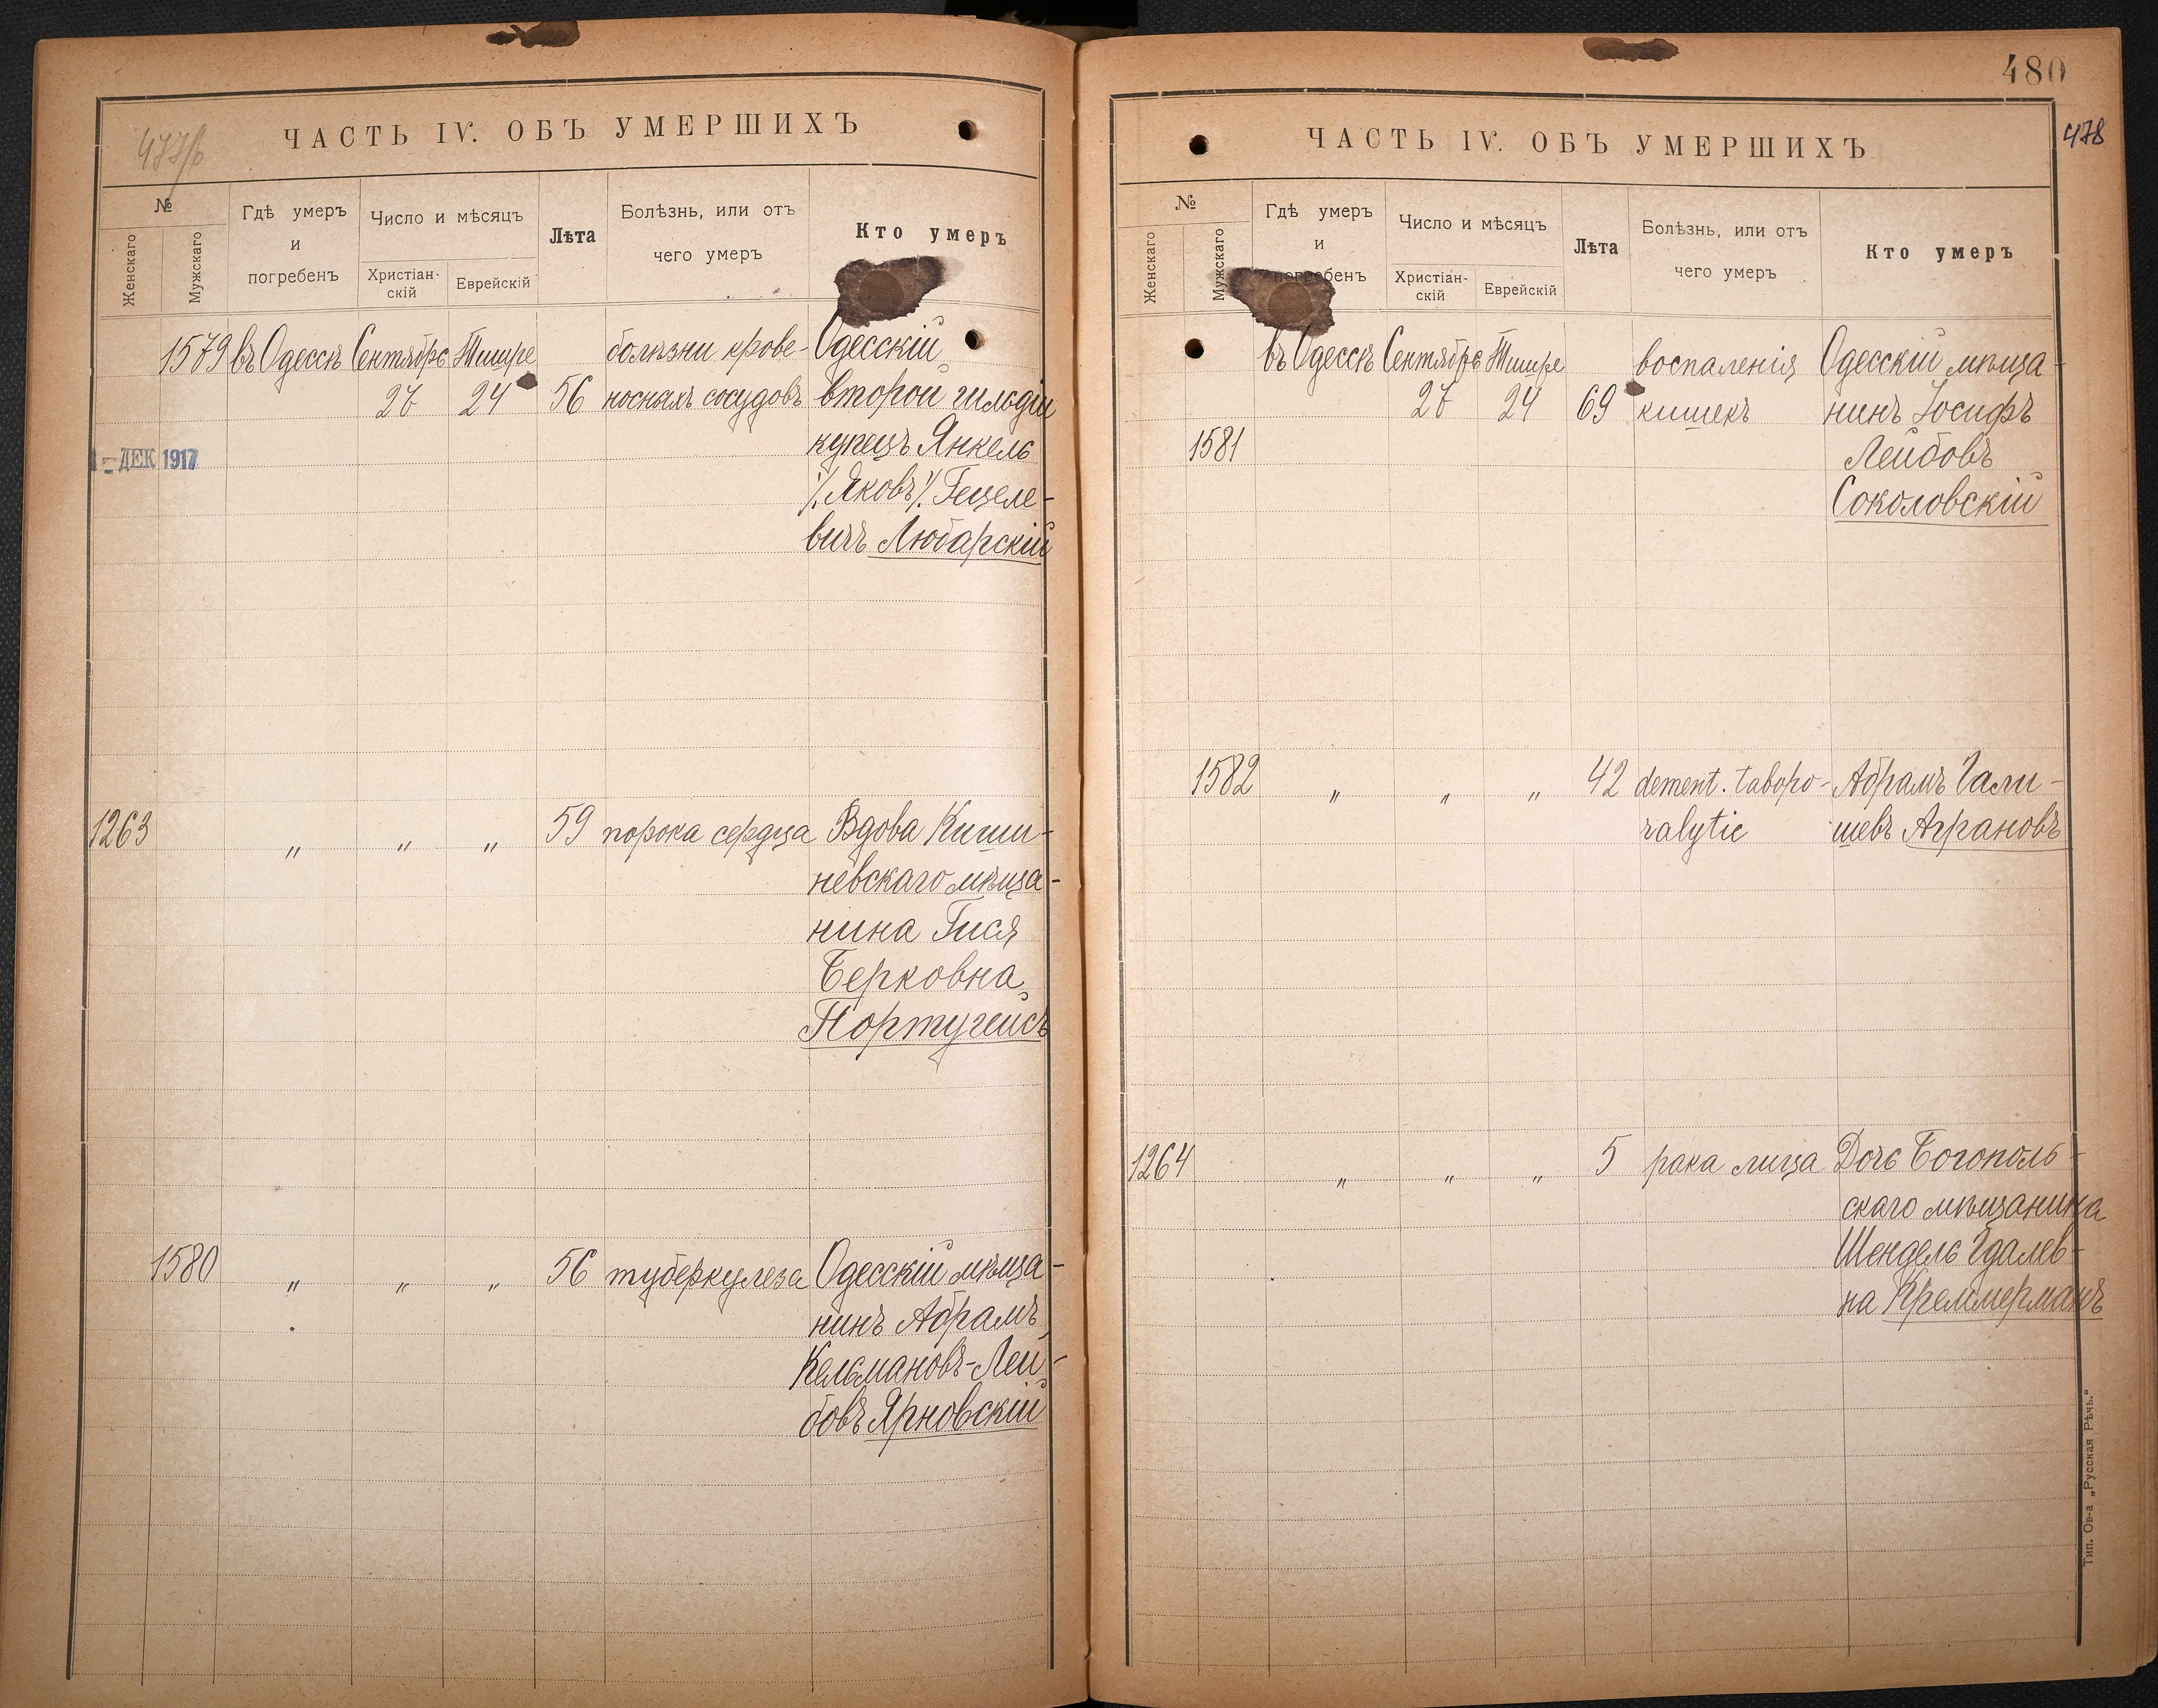 477/b
ЧАСТЬ IV. ОБЪ УМЕРШИХЪ
№
Женскаго
Мужскаго
Гдѣ умеръ
и
погребенъ
Число и мѣсяцъ
Христіан-
скій
Еврейскій
Лѣта
Болѣзнь, или отъ
чего умеръ
Кто умеръ
1579 въ Одессѣ Сентября Тишре болѣзни крове- Одесскій
27 24 56 носныхъ сосудовъ второй гильдіи
купецъ Янкель
1-ДЕК 1917
/Яковъ/ Гецеле-
вичъ Любарскій
1263 „ „ „ 59 порока сердца Вдова Киши-
невскаго мѣща-
нина Гися
Берковна
Португейсъ
1580 „ „ „ 56 туберкулеза Одесскій мѣща-
нинъ Абрамъ
Кельмановъ-Лей-
бовъ Ярновскій
480
478
ЧАСТЬ IV. ОБЪ УМЕРШИХЪ
№
Женскаго
Мужскаго
Гдѣ умеръ
и
погребенъ
Число и мѣсяцъ
Христіан-
скій
Еврейскій
Лѣта
Болѣзнь, или отъ
чего умеръ
Кто умеръ
въ Одессѣ Сентября Тишре воспаленія Одесскій мѣща-
27 24 69 кишекъ нинъ Іосифъ
1581 Лейбовъ
Соколовскій
1582 „ „ „ 42 dement. Абрамъ Гали-
ralytic шевъ Аграновъ
1264 „ „ „ 5 рака лица Дочь Богополь-
скаго мѣщанина
Шендель Гдалев-
на Креммерманъ
Тип. Ов-а „Русская Рѣчь.“